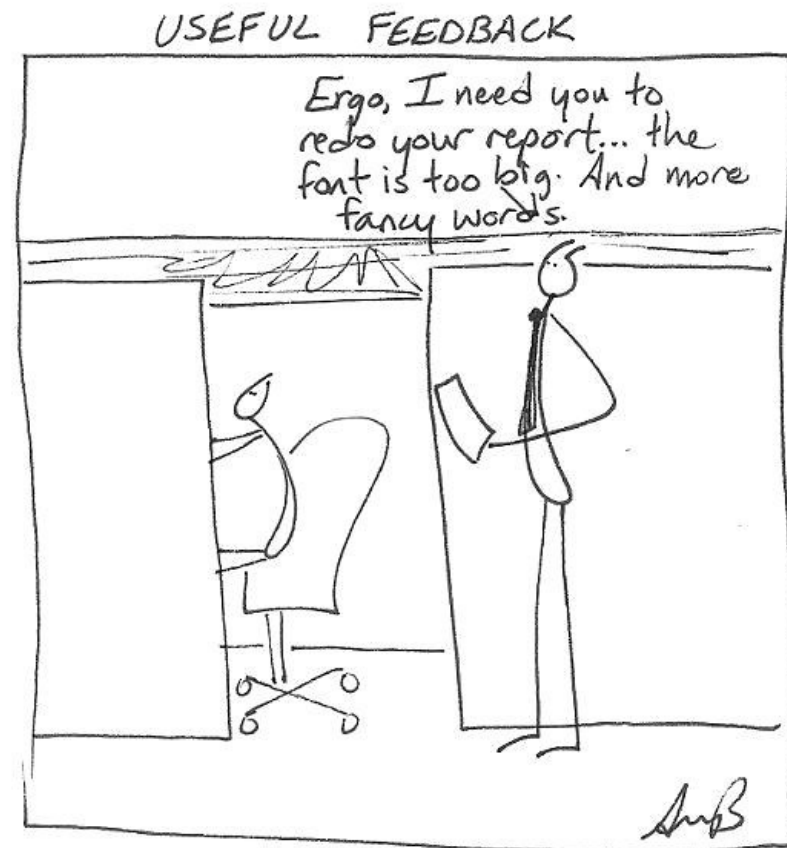 USEFUL FEEDBACK
Ergo, I need you to
redo your report... the
font is too big. And more
fancy words.